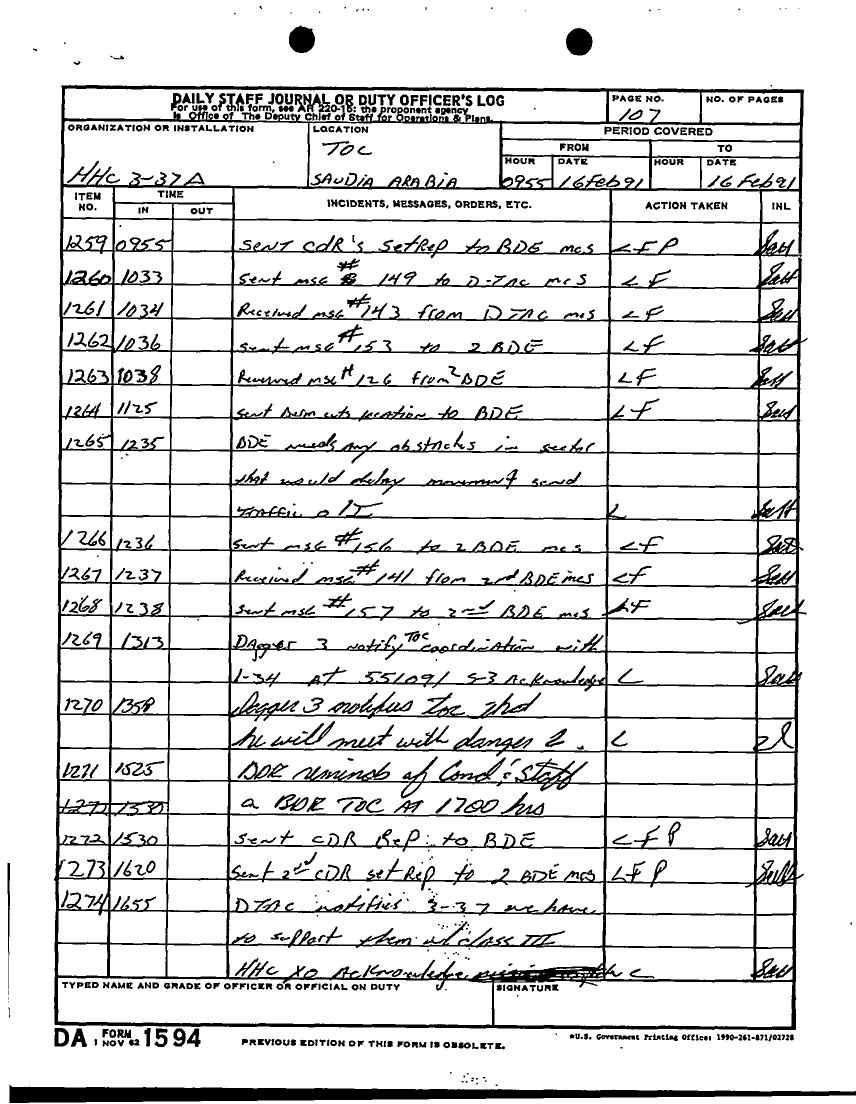 DAILY STAFF JOURNAL OR DUTY OFFICER'S LOG
For use of this form, see AR 220-15: the proponent agency
is Office of The Deputy Chief of Staff for Operations & Plans.
PAGE NO.
107
NO. OF PAGES
ORGANIZATION OR INSTALLATION
HHC 3-37A
LOCATION
TOC
SAUDIA ARABIA
PERIOD COVERED
FROM TO
HOUR DATE HOUR DATE
0955 16Feb91 16Feb91
ITEM NO. TIME IN OUT INCIDENTS, MESSAGES, ORDERS, ETC. ACTION TAKEN INL
1259 0955 SENT CdR's SetRep to BDE mcs LFP
1260 1033 Sent msg # 149 to D-TAC mcS LF
1261 1034 Received msg #143 from DTAC mcs LF
1262 1036 Sent msg #153 to 2 BDE LF
1263 1038 Received msg # 126 from 2 BDE LF
1264 1125 sent Berm cuts location to BDE LF
1265 1235 BDE needs any obstacles in sector
that would delay movement send
TRAFFIC o IT L
1266 1236 Sent msg #156 to 2 BDE mcs LF
1267 1237 Received msg #141 from 2nd BDE mcs LF
1268 1238 Sent msg #157 to 2nd BDE mcs LF
1269 1313 DAgger 3 notify TOC coordination with
1-34 AT 551091 S-3 Acknowledge L
1270 1358 Dagger 3 notifies Toc that
he will meet with danger 2. L
1271 1525 BDE reminds of Cond & Staff
1272 1530 a BDE TOC AT 1700 hrs
1272 1530 Sent CDR Rep to BDE LFP
1273 1620 Sent 2nd CDR set Rep to 2 BDE mcs LFP
1274 1655 DTAC notifies 3-37 we have
to support them w/ class III
HHC XO Acknowledge L
TYPED NAME AND GRADE OF OFFICER OR OFFICIAL ON DUTY
SIGNATURE
DA FORM 1 NOV 62 1594
PREVIOUS EDITION OF THIS FORM IS OBSOLETE.
*U.S. Government Printing Office: 1990-261-871/02728